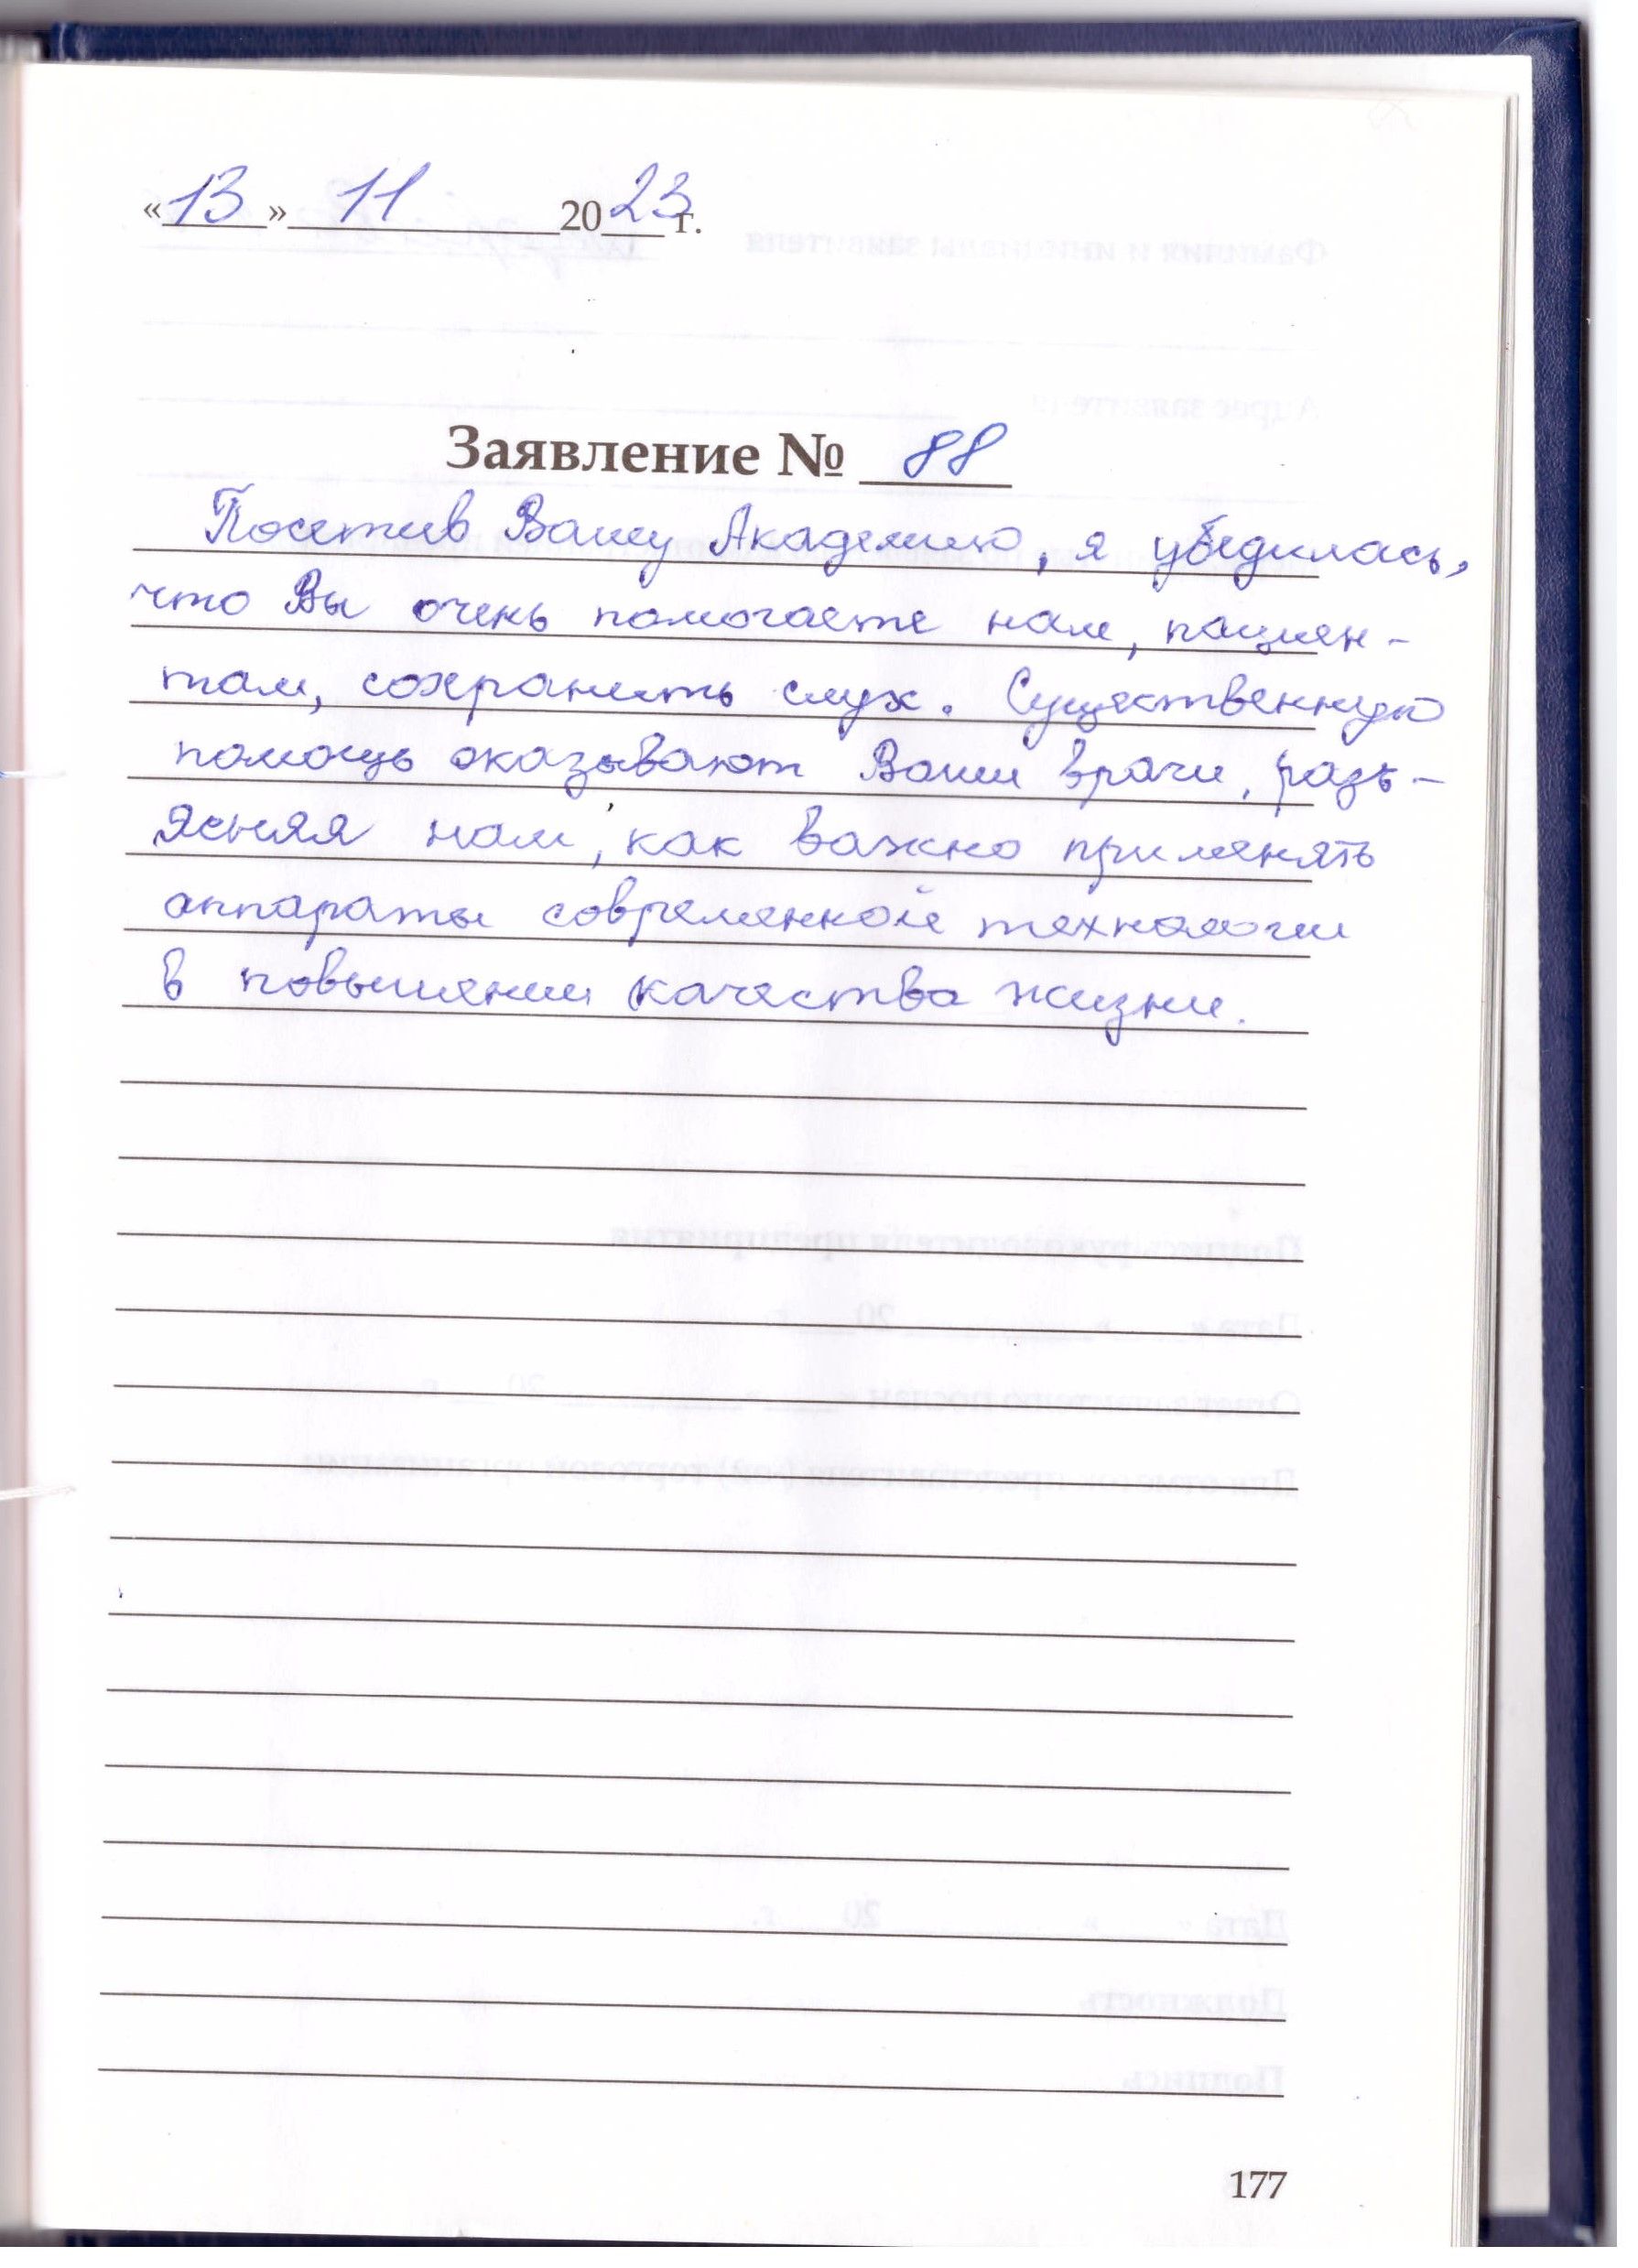 «13» 11 2023 г.
Заявление № 88
Посетив Вашу Академию, я убедилась,
что Вы очень помогаете нам, пациен-
там, сохранить слух. Существенную
помощь оказывают Ваши врачи, разъ-
ясняя нам, как важно применять
аппараты современной технологии
в повышении качества жизни.
177